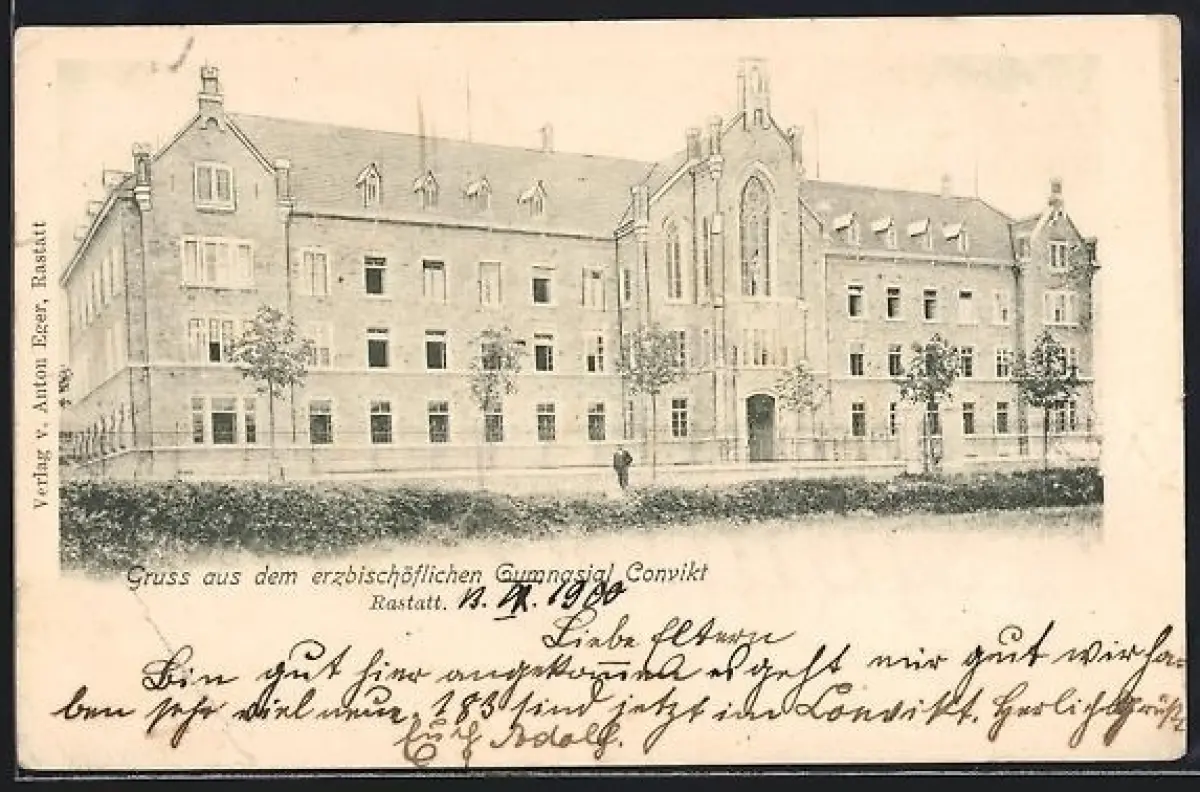 Verlag v. Anton Eger, Rastatt
Gruss aus dem erzbischöflichen Gymnasial Convikt
Rastatt. 13. IX. 1900
Liebe Eltern
Bin gut hier angekommen es geht mir gut wir ha-
ben sehr viel neue, 183 sind jetzt im Convikt. Herliche Grüße
Euch Adolf.